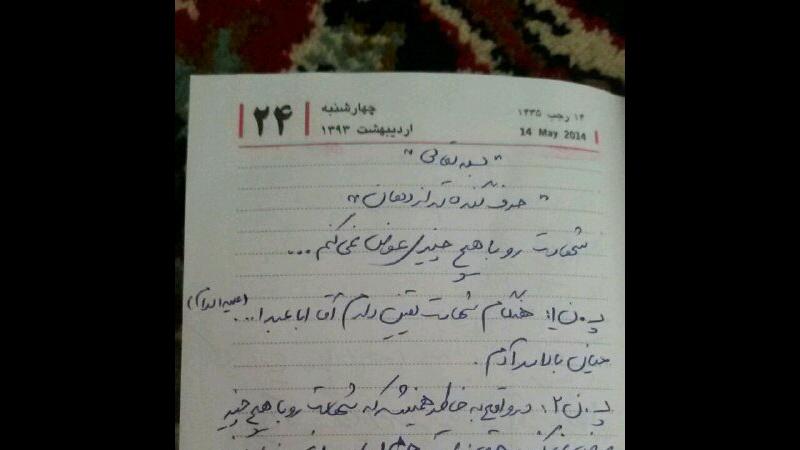 ۲۴
چهارشنبه
اردیبهشت ۱۳۹۳
۱۴ رجب ۱۴۳۵
14 May 2014
" بسمه تعالی "
" حرف گنده تر از دهان "
شهادت رو با هیچ چیزی عوض نمی کنم ...
پ.ن۱: هنگام شهادت یقین دارم آقا اباعبدا... (علیه السلام)
میان بالا سرم
پ.ن۲: در واقع به خاطر همینشه که شهادت رو با هیچ چیز